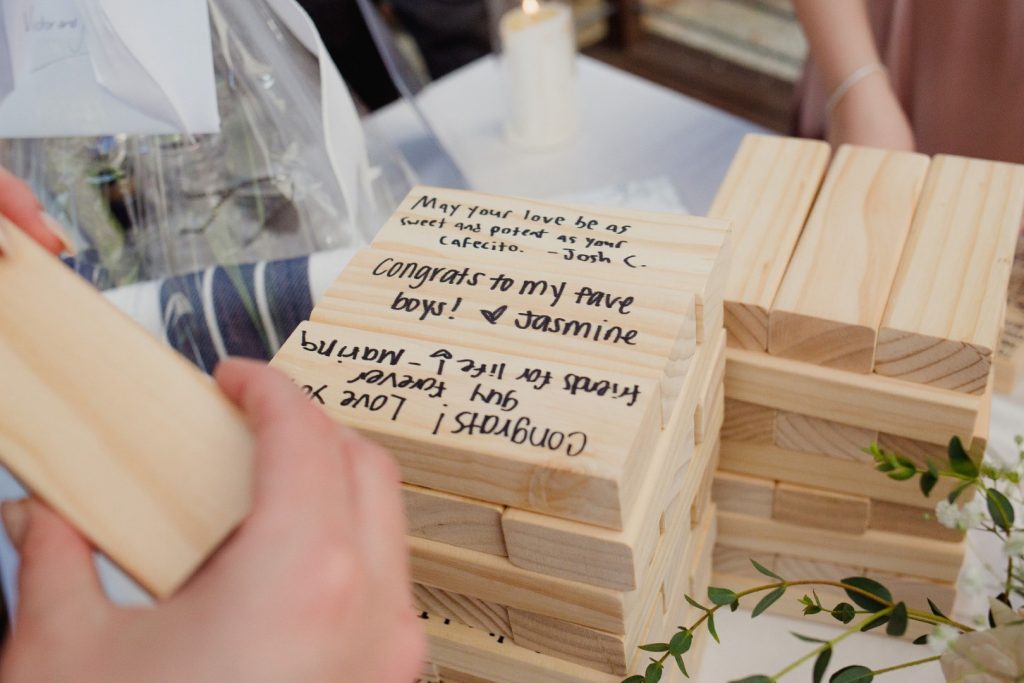 May your love be as
sweet and potent as your
Cafecito. -Josh C.
Congrats to my fave
boys! ♥ Jasmine
Congrats! Love
guy forever
friends for life -